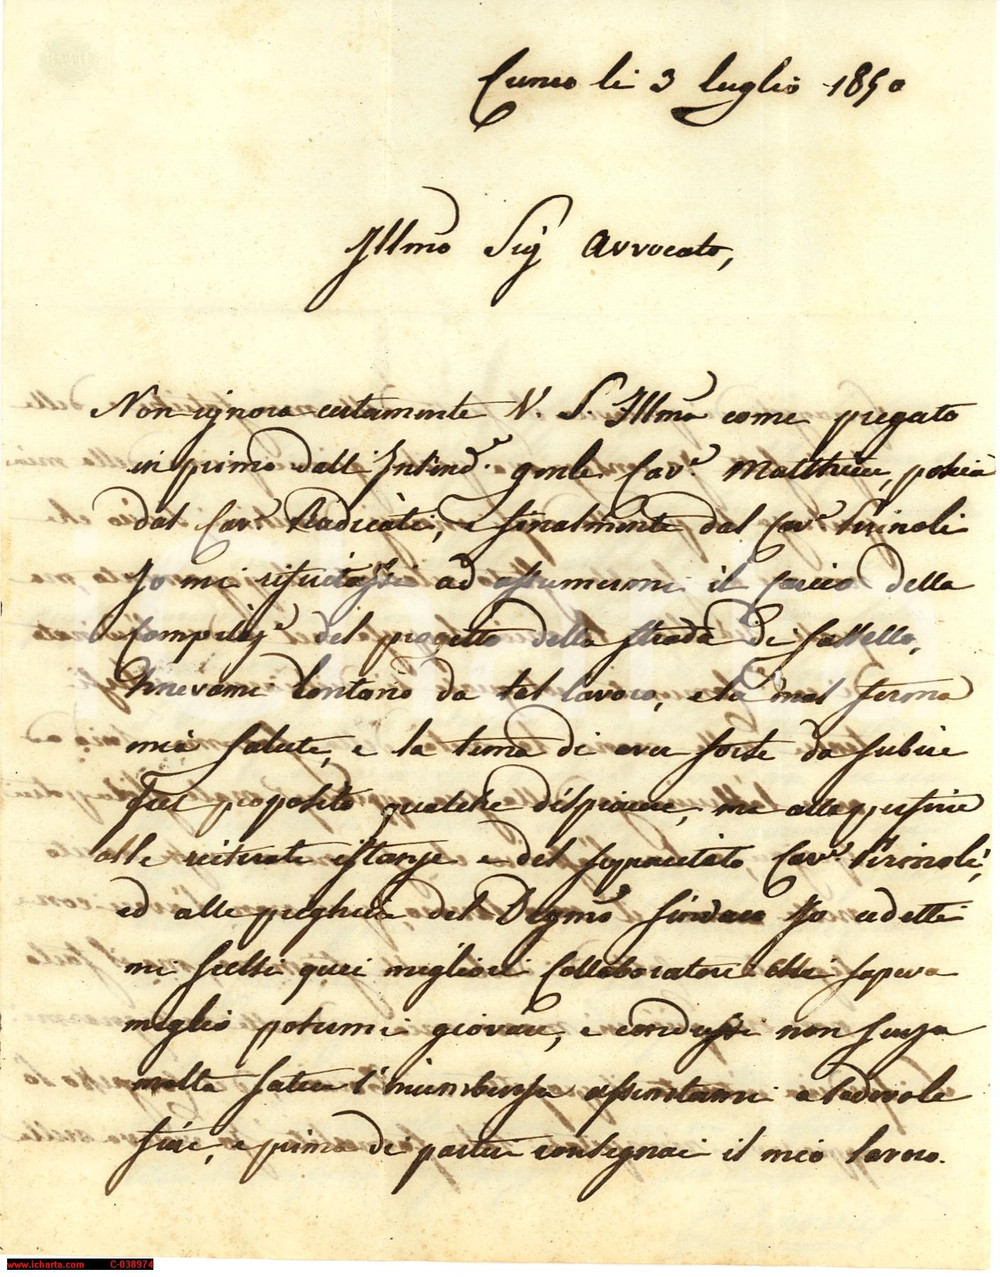 Cuneo li 3 luglio 1850
Illmo Sig Avvocato,
Non ignora certamente V. S. Illma come pregato
in primo dall' Intend.e gnle Cav.e Matthieu, poscia
dal Cav.e Radicati, e finalmente dal Cav.e Pirinoli
Io mi rifiutassi ad assumermi il carico della
Compilaz.e del progetto della strada di
Tenevami lontano da tal lavoro, e la mal ferma
mia salute, e la tema di aver forse da subire
proposito qualche dispiacere, ma alla per fine
alle reiterate istanze e del Cav.e Pirinoli,
ed alle preghiere del Degmo Sindaco Io cedetti
mi scelsi quei migliori Collaboratori che sapeva
meglio potermi giovare, e condussi non senza
molta fatica l' assuntami a lodevole
fine, e prima di partire consegnai il mio lavoro.
www.icharta.com C-038974